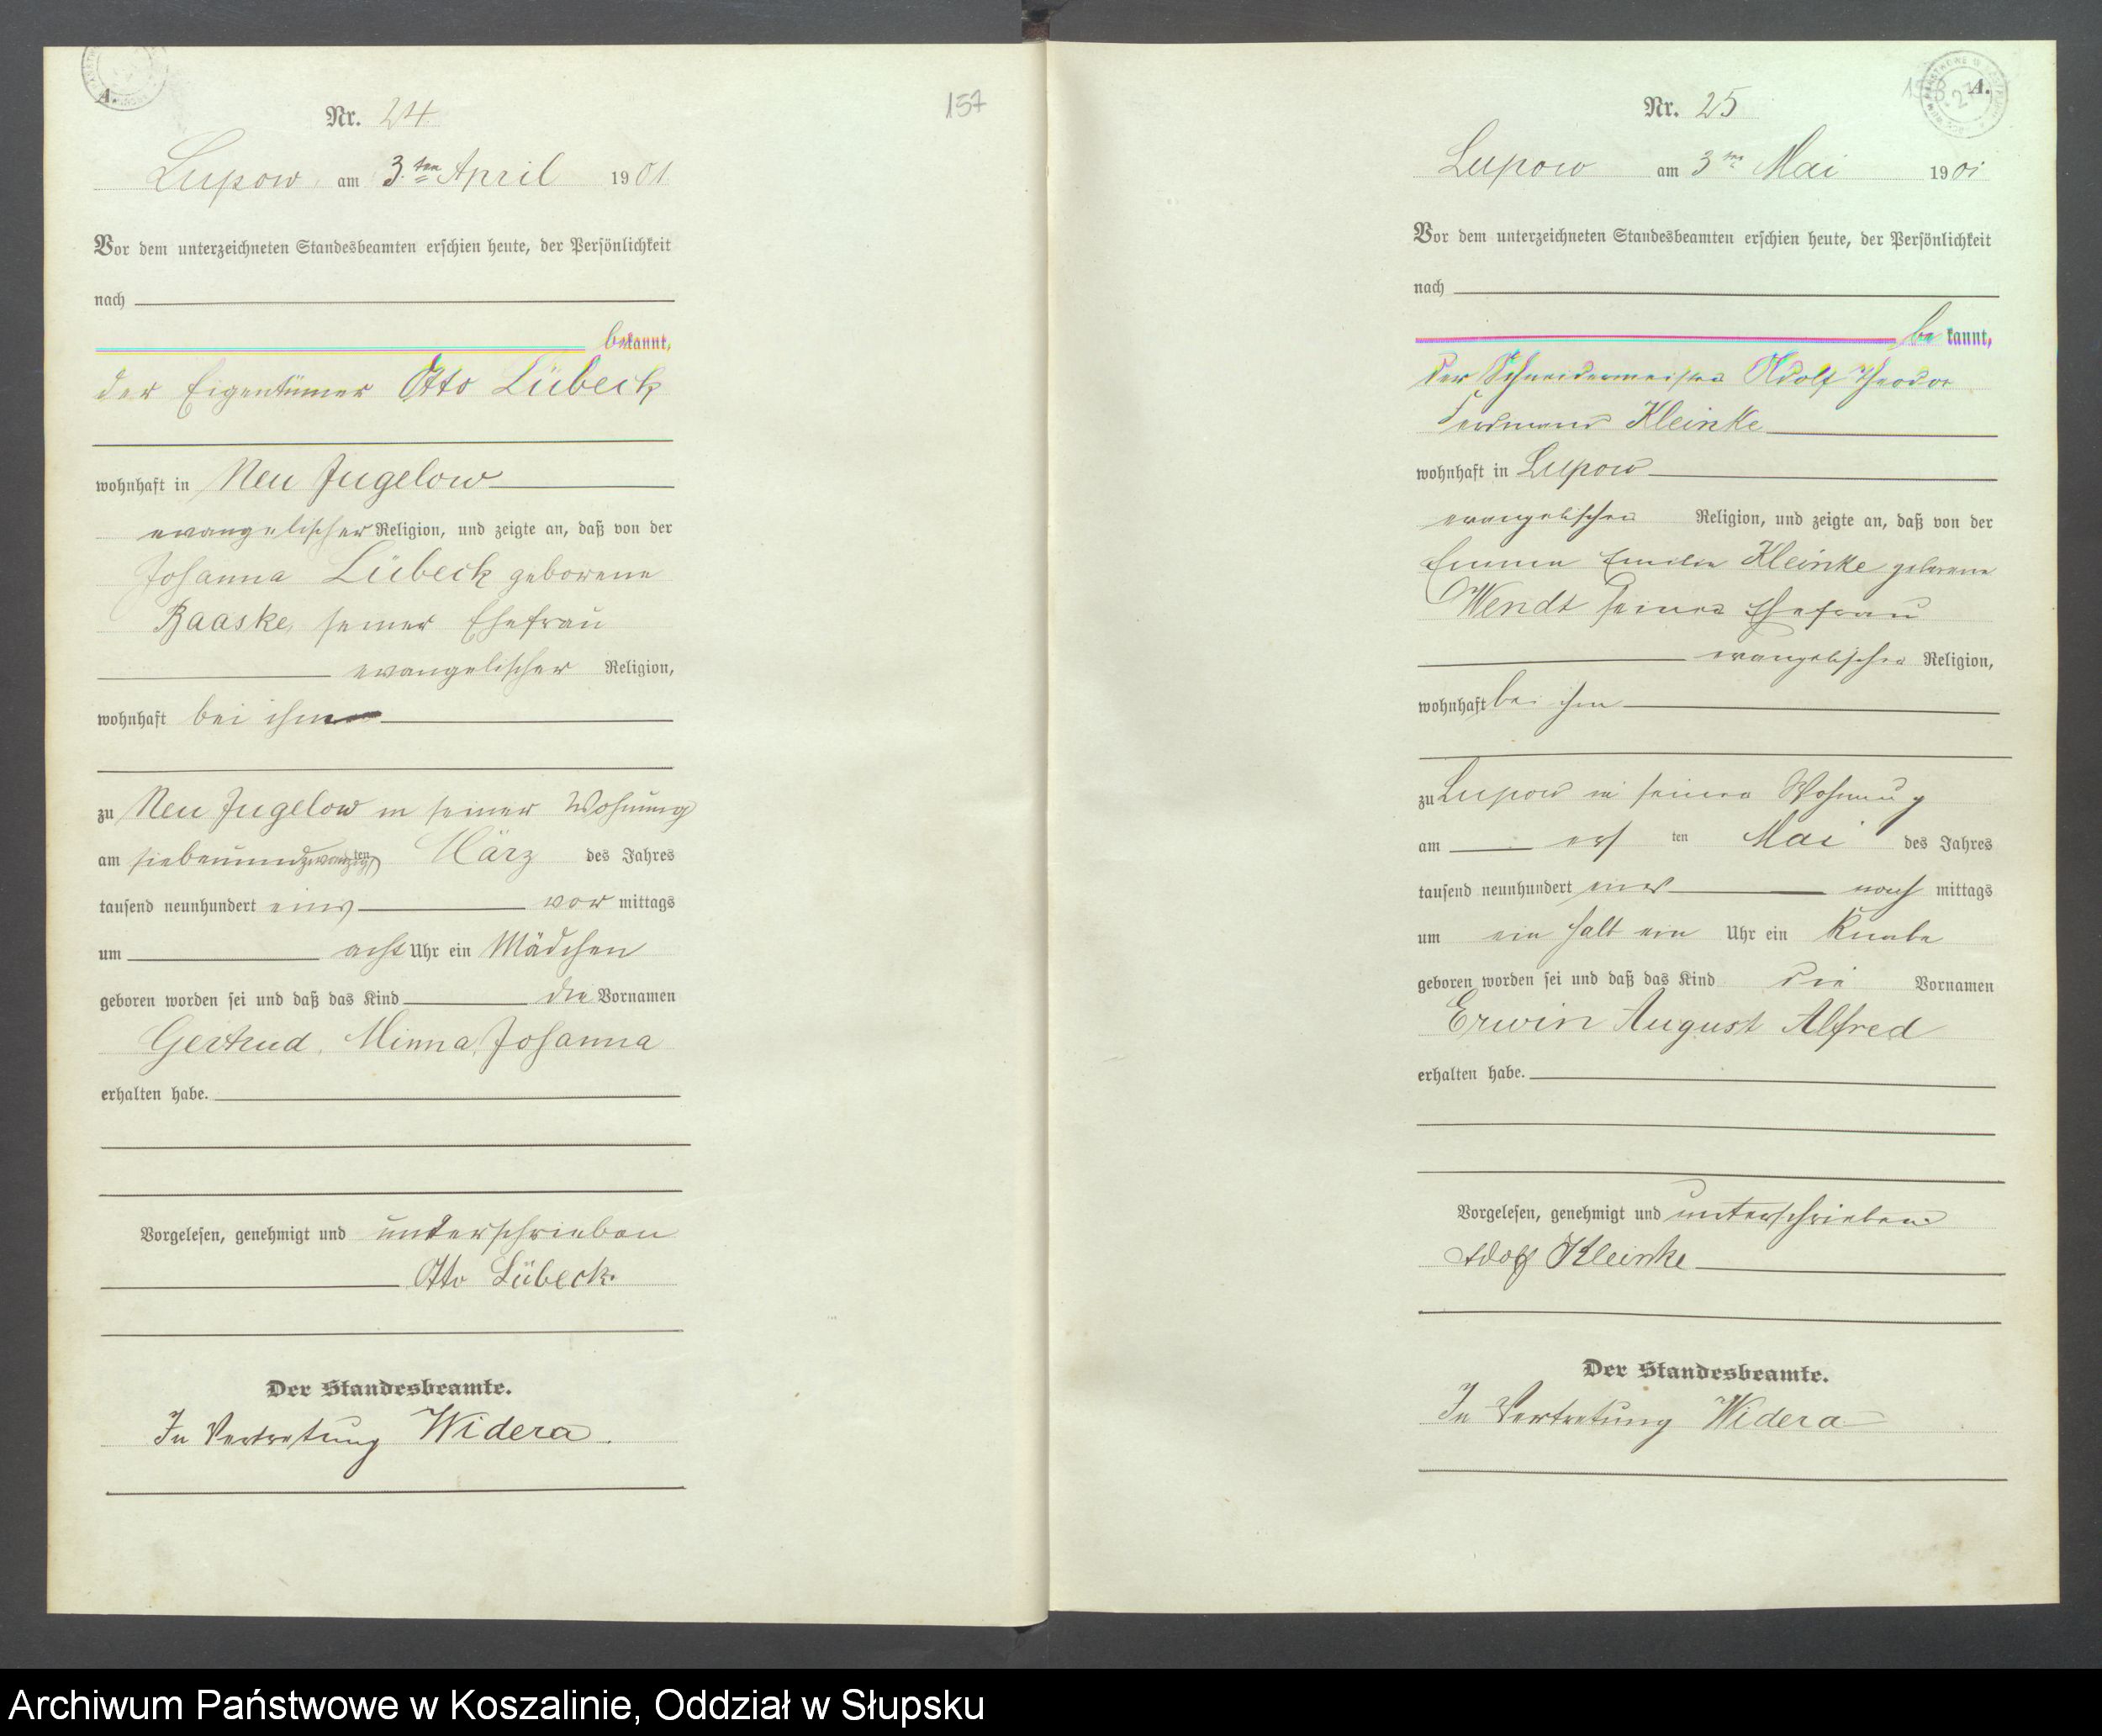 A.
Nr. 24
Lupow, am 3.ten April 1901
Vor dem unterzeichneten Standesbeamten erschien heute, der Persönlichkeit
nach
bekannt,
der Eigentümer Otto Lübeck
wohnhaft in Neu Jugelow
evangelischer Religion, und zeigte an, daß von der
Johanna Lübeck geborene
Raaske, seiner Ehefrau
evangelischer Religion,
wohnhaft bei ihm
zu Neu Jugelow in seiner Wohnung
am siebenundzwanzigsten März des Jahres
tausend neunhundert eins vor mittags
um acht Uhr ein Mädchen
geboren worden sei und daß das Kind die Vornamen
Gertrud, Minna, Johanna
erhalten habe.
Vorgelesen, genehmigt und unterschrieben
Otto Lübeck.
Der Standesbeamte.
In Vertretung Widera.
157
A.
Nr. 25
Lupow am 3ten Mai 1901
Vor dem unterzeichneten Standesbeamten erschien heute, der Persönlichkeit
nach
be kannt,
der Schneidermeister Adolf Theodor
Ferdinand Kleinke
wohnhaft in Lupow
evangelischer Religion, und zeigte an, daß von der
Emma Emilie Kleinke geborene
Wendt seiner Ehefrau
evangelischer Religion,
wohnhaft bei ihm
zu Lupow in seiner Wohnung
am ers ten Mai des Jahres
tausend neunhundert eins nach mittags
um ein halb ein Uhr ein Knabe
geboren worden sei und daß das Kind die Vornamen
Erwin August Alfred
erhalten habe.
Vorgelesen, genehmigt und unterschrieben
Adolf Kleinke
Der Standesbeamte.
In Vertretung Widera
Archiwum Państwowe w Koszalinie, Oddział w Słupsku